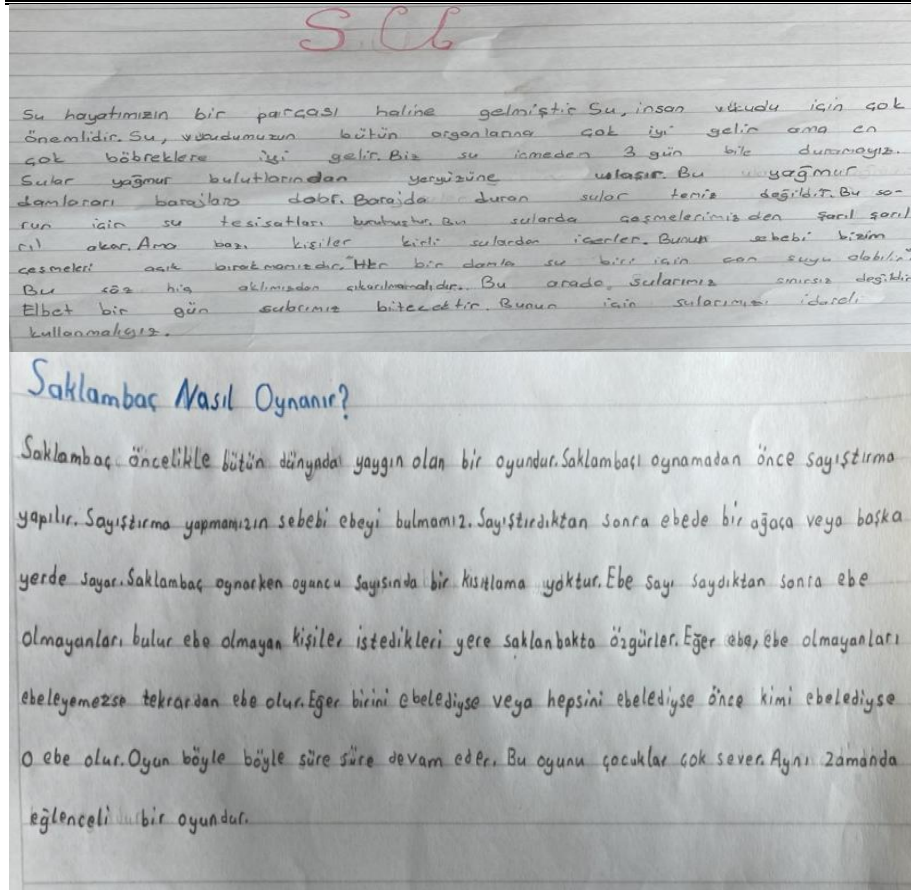 SU
Su hayatımızın bir parçası haline gelmiştir Su, insan vücudu için çok
önemlidir. Su, vücudumuzun bütün organlarına çok iyi gelir ama en
çok böbreklere iyi gelir. Biz su içmeden 3 gün bile duramayız.
Sular yağmur bulutlarından yeryüzüne ulaşır. Bu yağmur
damlaları barajlara dolar. Barajda duran sular temiz değildir. Bu so-
run için su tesisatları Bu sularda çeşmelerimizden şarıl şarıl
rıl akar. Ama bazı kişiler kirli sulardan içerler. Bunun sebebi bizim
çeşmeleri açık bırakmamızdır. "Her bir damla su biri için can suyu olabilir"
Bu söz hiç aklımızdan çıkarılmamalıdır. Bu arada, sularımız sınırsız değildir
Elbet bir gün sularımız bitecektir. Bunun için sularımızı idareli
kullanmalıyız.
Saklambaç Nasıl Oynanır?
Saklambaç öncelikle bütün dünyada yaygın olan bir oyundur. Saklambaçı oynamadan önce sayıştırma
yapılır. Sayıştırma yapmamızın sebebi ebeyi bulmamız. Sayıştırdıktan sonra ebede bir ağaça veya başka
yerde sayar. Saklambaç oynarken oyuncu sayısında bir kısıtlama yoktur. Ebe sayı saydıktan sonra ebe
olmayanları bulur ebe olmayan kişiler istedikleri yere saklanbakta özgürler. Eğer ebe, ebe olmayanları
ebeleyemezse tekrardan ebe olur. Eğer birini ebelediyse veya hepsini ebelediyse önce kimi ebelediyse
o ebe olur. Oyun böyle böyle süre süre devam eder. Bu oyunu çocuklar çok sever. Aynı zamanda
eğlenceli bir oyundur.